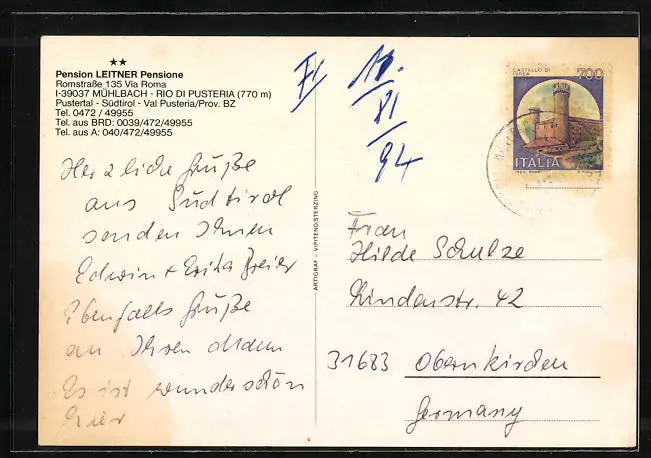 ★★
Pension LEITNER Pensione
Romstraße 135 Via Roma
I-39037 MÜHLBACH - RIO DI PUSTERIA (770 m)
Pustertal - Südtirol - Val Pusteria/Prov. BZ
Tel. 0472 / 49955
Tel. aus BRD: 0039/472/49955
Tel. aus A: 040/472/49955
Herzliche Grüße
aus Südtirol
senden Ihnen
Edwin + Erika
Ebenfalls Grüße
an Ihren
Es ist wunderschön
hier
ARTIGRAF - VIPITENO/STERZING
81
94
CASTELLO DI
IVREA
700
ITALIA
Frau
Hilde Schulze
Lindenstr. 42
31683 Obernkirchen
Germany